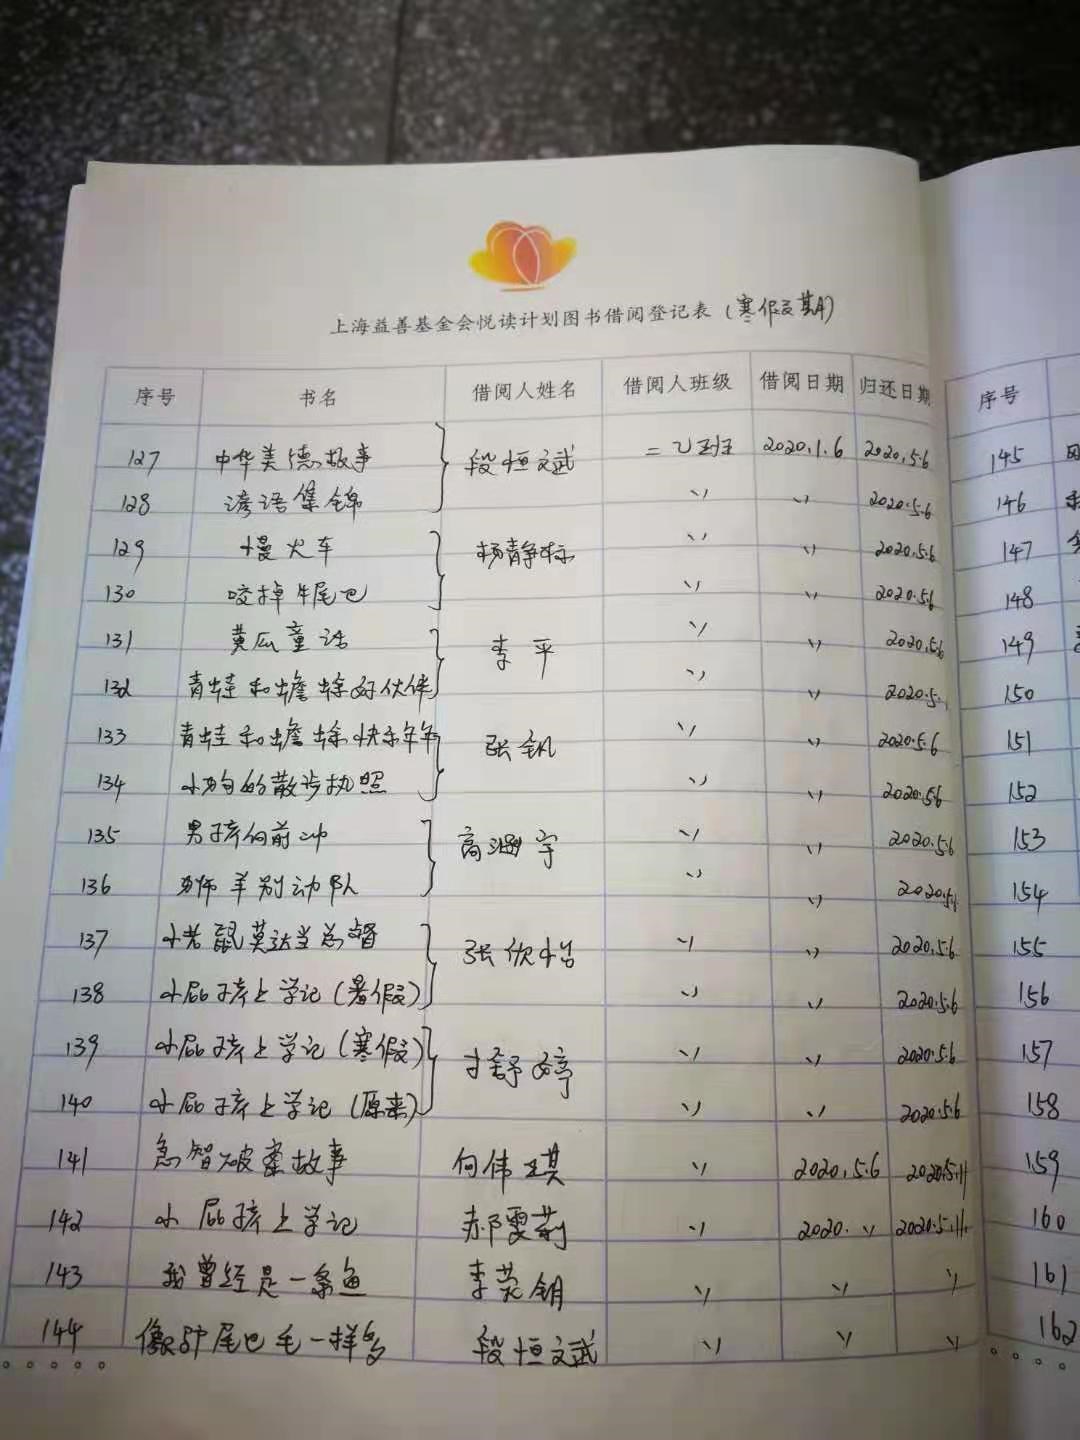 上海益善基金会悦读计划图书借阅登记表(寒假期)
序号 书名 借阅人姓名 借阅人班级 借阅日期 归还日期 序号
127 中华美德故事 段恒斌 二乙班 2020.1.6 2020.5.6 145
128 谚语集锦 〃 〃 2020.5.6 146
129 慢火车 杨静标 〃 〃 2020.5.6 147
130 咬掉牛尾巴 〃 〃 2020.5.6 148
131 黄瓜童话 李平 〃 〃 2020.5.6 149
132 青蛙和蟾蜍好伙伴 〃 〃 2020.5. 150
133 青蛙和蟾蜍快乐年年 张钒 〃 〃 2020.5.6 151
134 小狗的散步执照 〃 〃 2020.5.6 152
135 男孩向前冲 高涵宇 〃 〃 2020.5.6 153
136 狮羊别动队 〃 〃 2020.5. 154
137 小老鼠莫达当总督 张欣怡 〃 〃 2020.5.6 155
138 小屁孩上学记(暑假) 〃 〃 2020.5.6 156
139 小屁孩上学记(寒假) 舒婷 〃 〃 2020.5.6 157
140 小屁孩上学记(原来) 〃 〃 2020.5.6 158
141 急智破案故事 何伟琪 〃 2020.5.6 2020.5.11 159
142 小屁孩上学记 郝雯莉 〃 2020. 〃 2020.5.11. 160
143 我曾经是一条鱼 李荣钥 〃 〃 〃 161
144 像驴尾巴毛一样多 段恒斌 〃 〃 〃 162